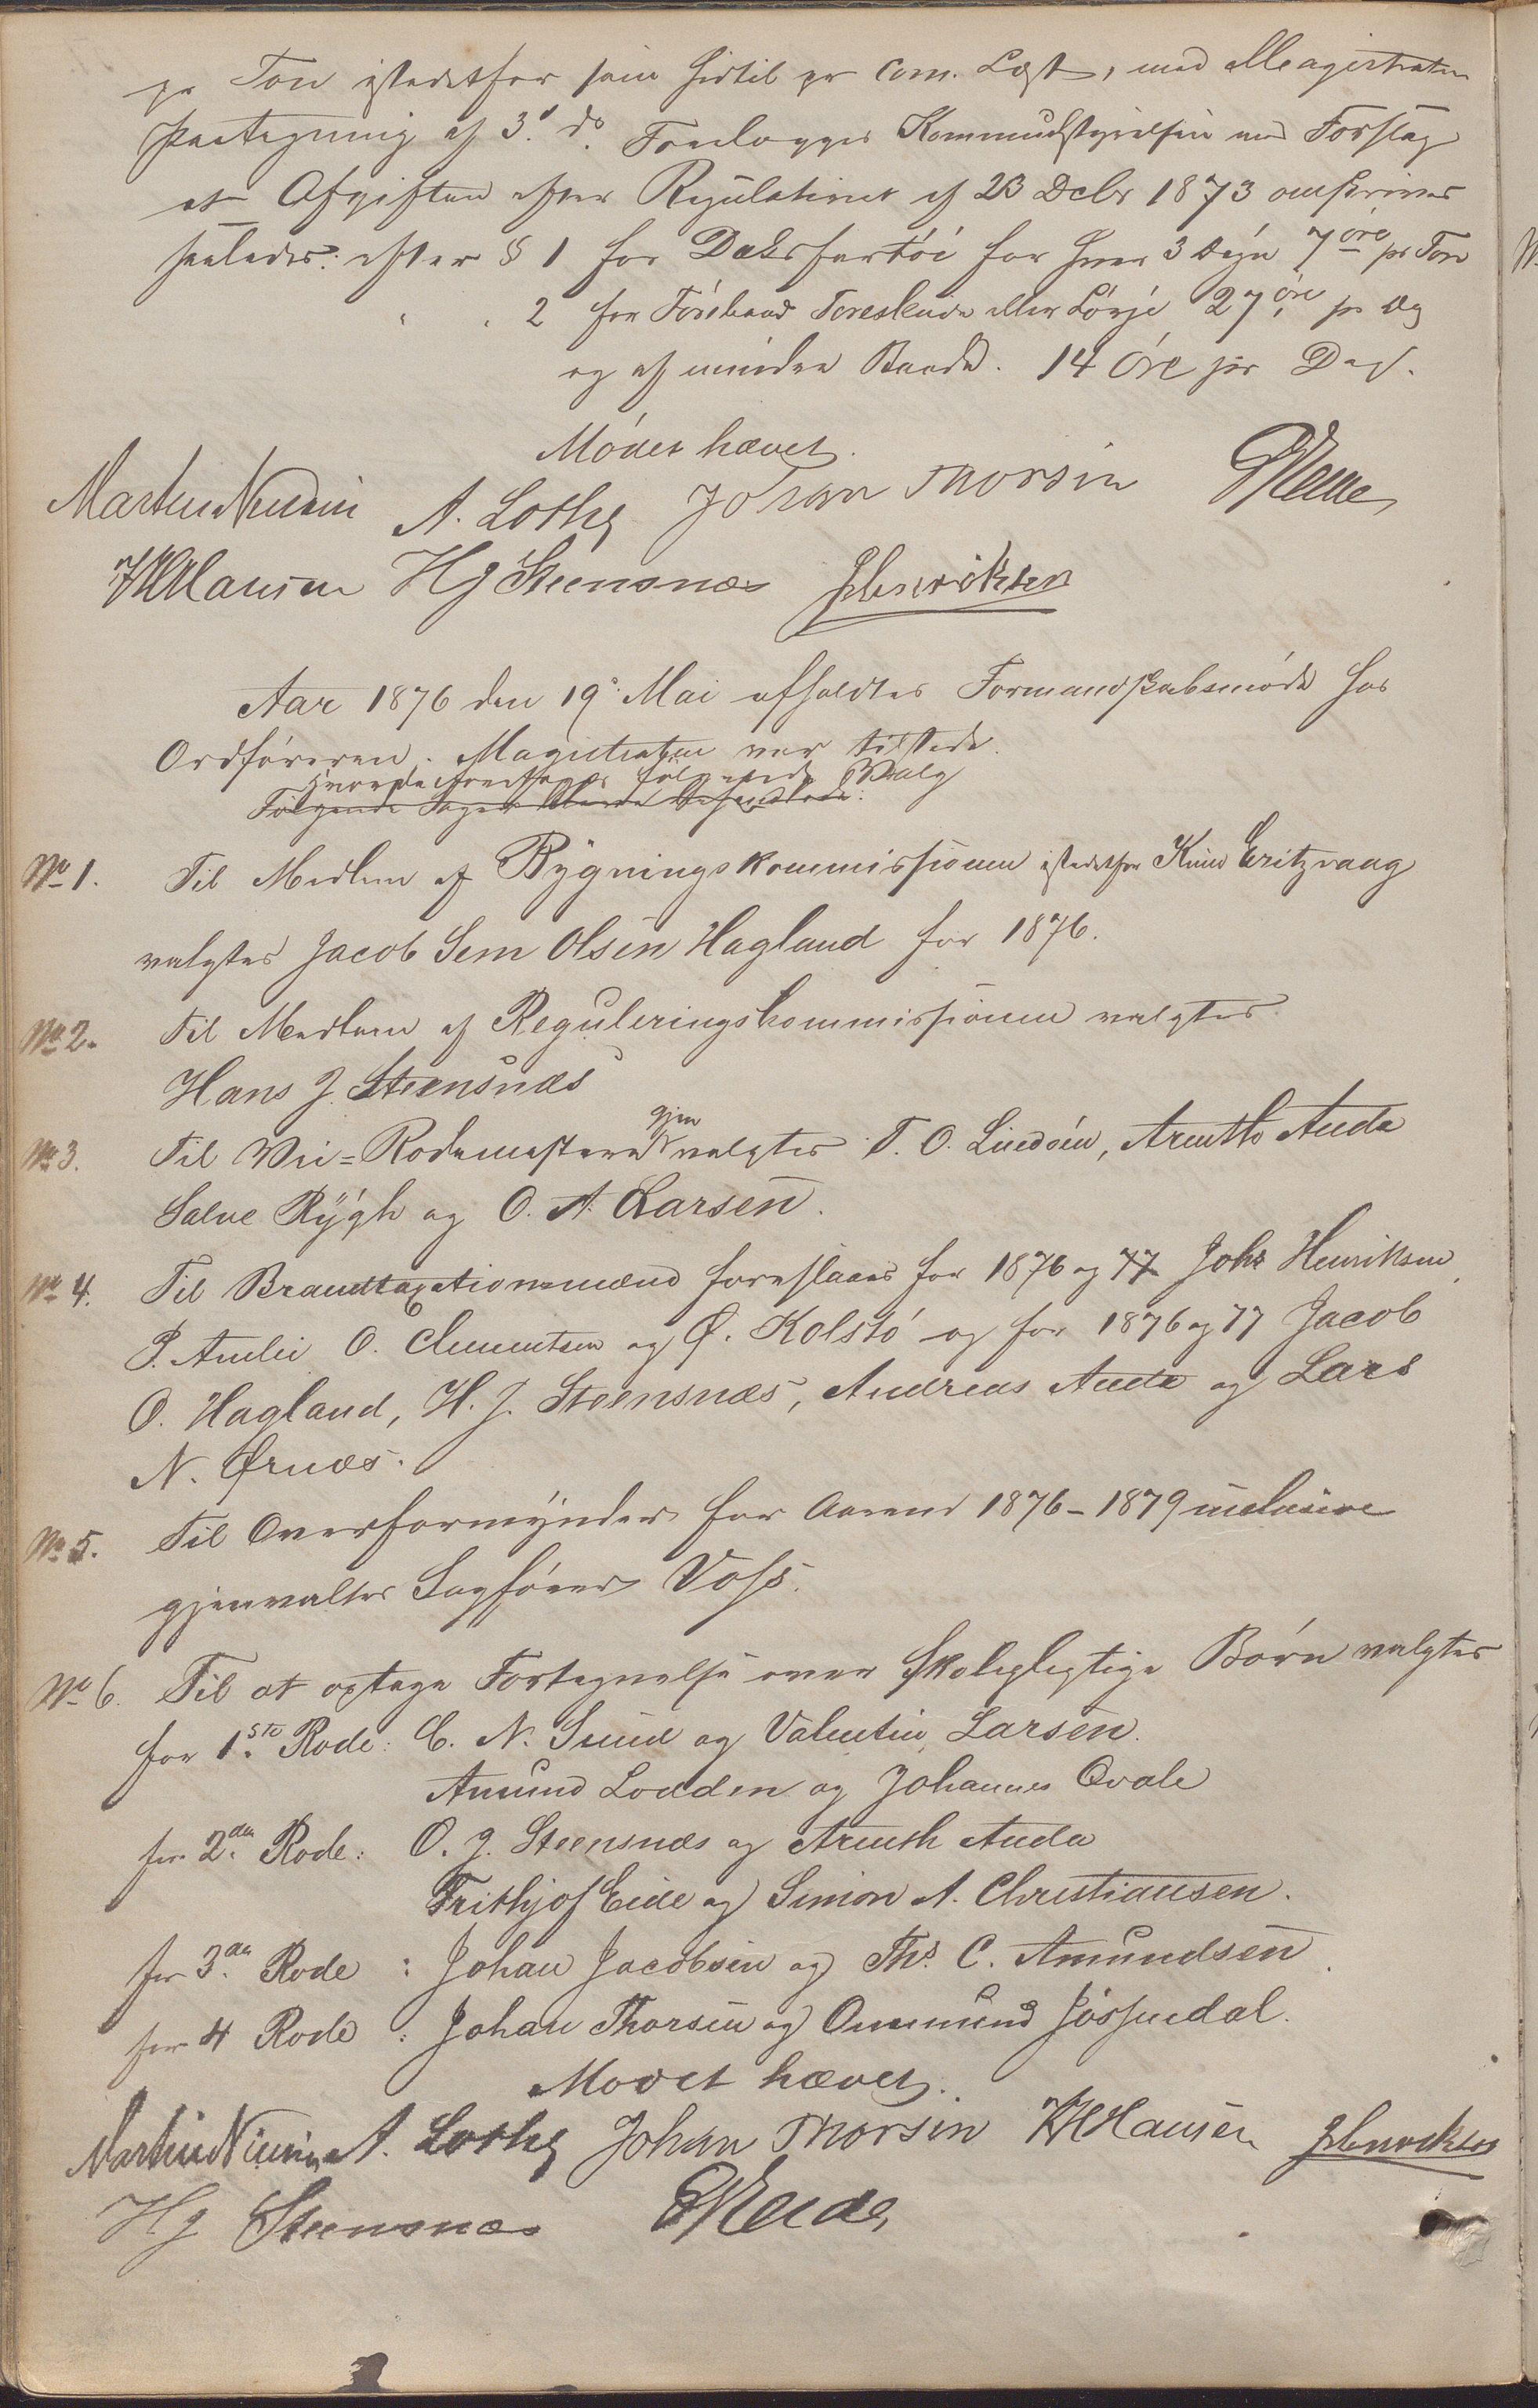 pr Ton istedetfor som hidtil pr Com. Læst, med Magistratens
Paategning af 3' ds. Forelægges Kommunestyrelsen med Forslag
at Afgiften efter Regulativet af 23 Decbr 1873 omskrives
saaledes: efter § 1 for Dæksfartöi for hver 3 Døgn 7 öre pr Ton
" " 2 for Föreband Toreskuide eller Lörje 27 öre pr Dag
og af mindre Baade. 14 Öre pr Dag.
Mödet hævet.
Martin A. Lothe Johan Thorsen
Hansen HJ Steensnæs JHenriksen
Aar 1876 den 19' Mai afholdtes Formandskabsmöde hos
Ordföreren. Magistraten var tilstede.
hvorda foretages fölgende Valg
Følgende Sager bleve behandlede:
No 1. Til Medlem af Bygningskommissionen istedetfor Knud Eritzvaag
valgtes Jacob Sem Olsen Hagland for 1876.
No 2. Til Medlem af Reguleringskommissionen valgtes
Hans J. Steensnæs
gjen
No 3. Til Vei=Rodemestere valgtes T. O. Lindöen, Arenth Auda
Salve Rygh og O. A. Larsen.
No 4. Til Brandtaxationsmænd foreslaaes for 1876 og 77 Johs Henriksen
P. Amlie O. Clementsen og Ø. Kolstö og for 1876 og 77 Jacob
O. Hagland, H. J. Steensnæs, Andreas Auda og Lars
N. Ørnæs.
No 5. Til Overformynder for Aarene 1876-1879 inclusive
gjenvaltes Sagförer Voss.
No 6. Til at optage Fortegnelse over skolepligtige Börn valgtes
for 1ste Rode: C. N. Sund og Valentin Larsen.
Amund Lodden og Johannes Qvale
for 2den Rode: O. J. Steensnæs og Arenth Auda
Frithjof Eide og Simon A. Christiansen.
for 3die Rode : Johan Jacobsen og Ths. C. Amundsen
for 4 Rode : Johan Thorsen og Ommund Jössendal.
Mödet hævet.
Martin A. Lothe Johan Thorsen Hansen JHenriksen
HJ Steensnæs